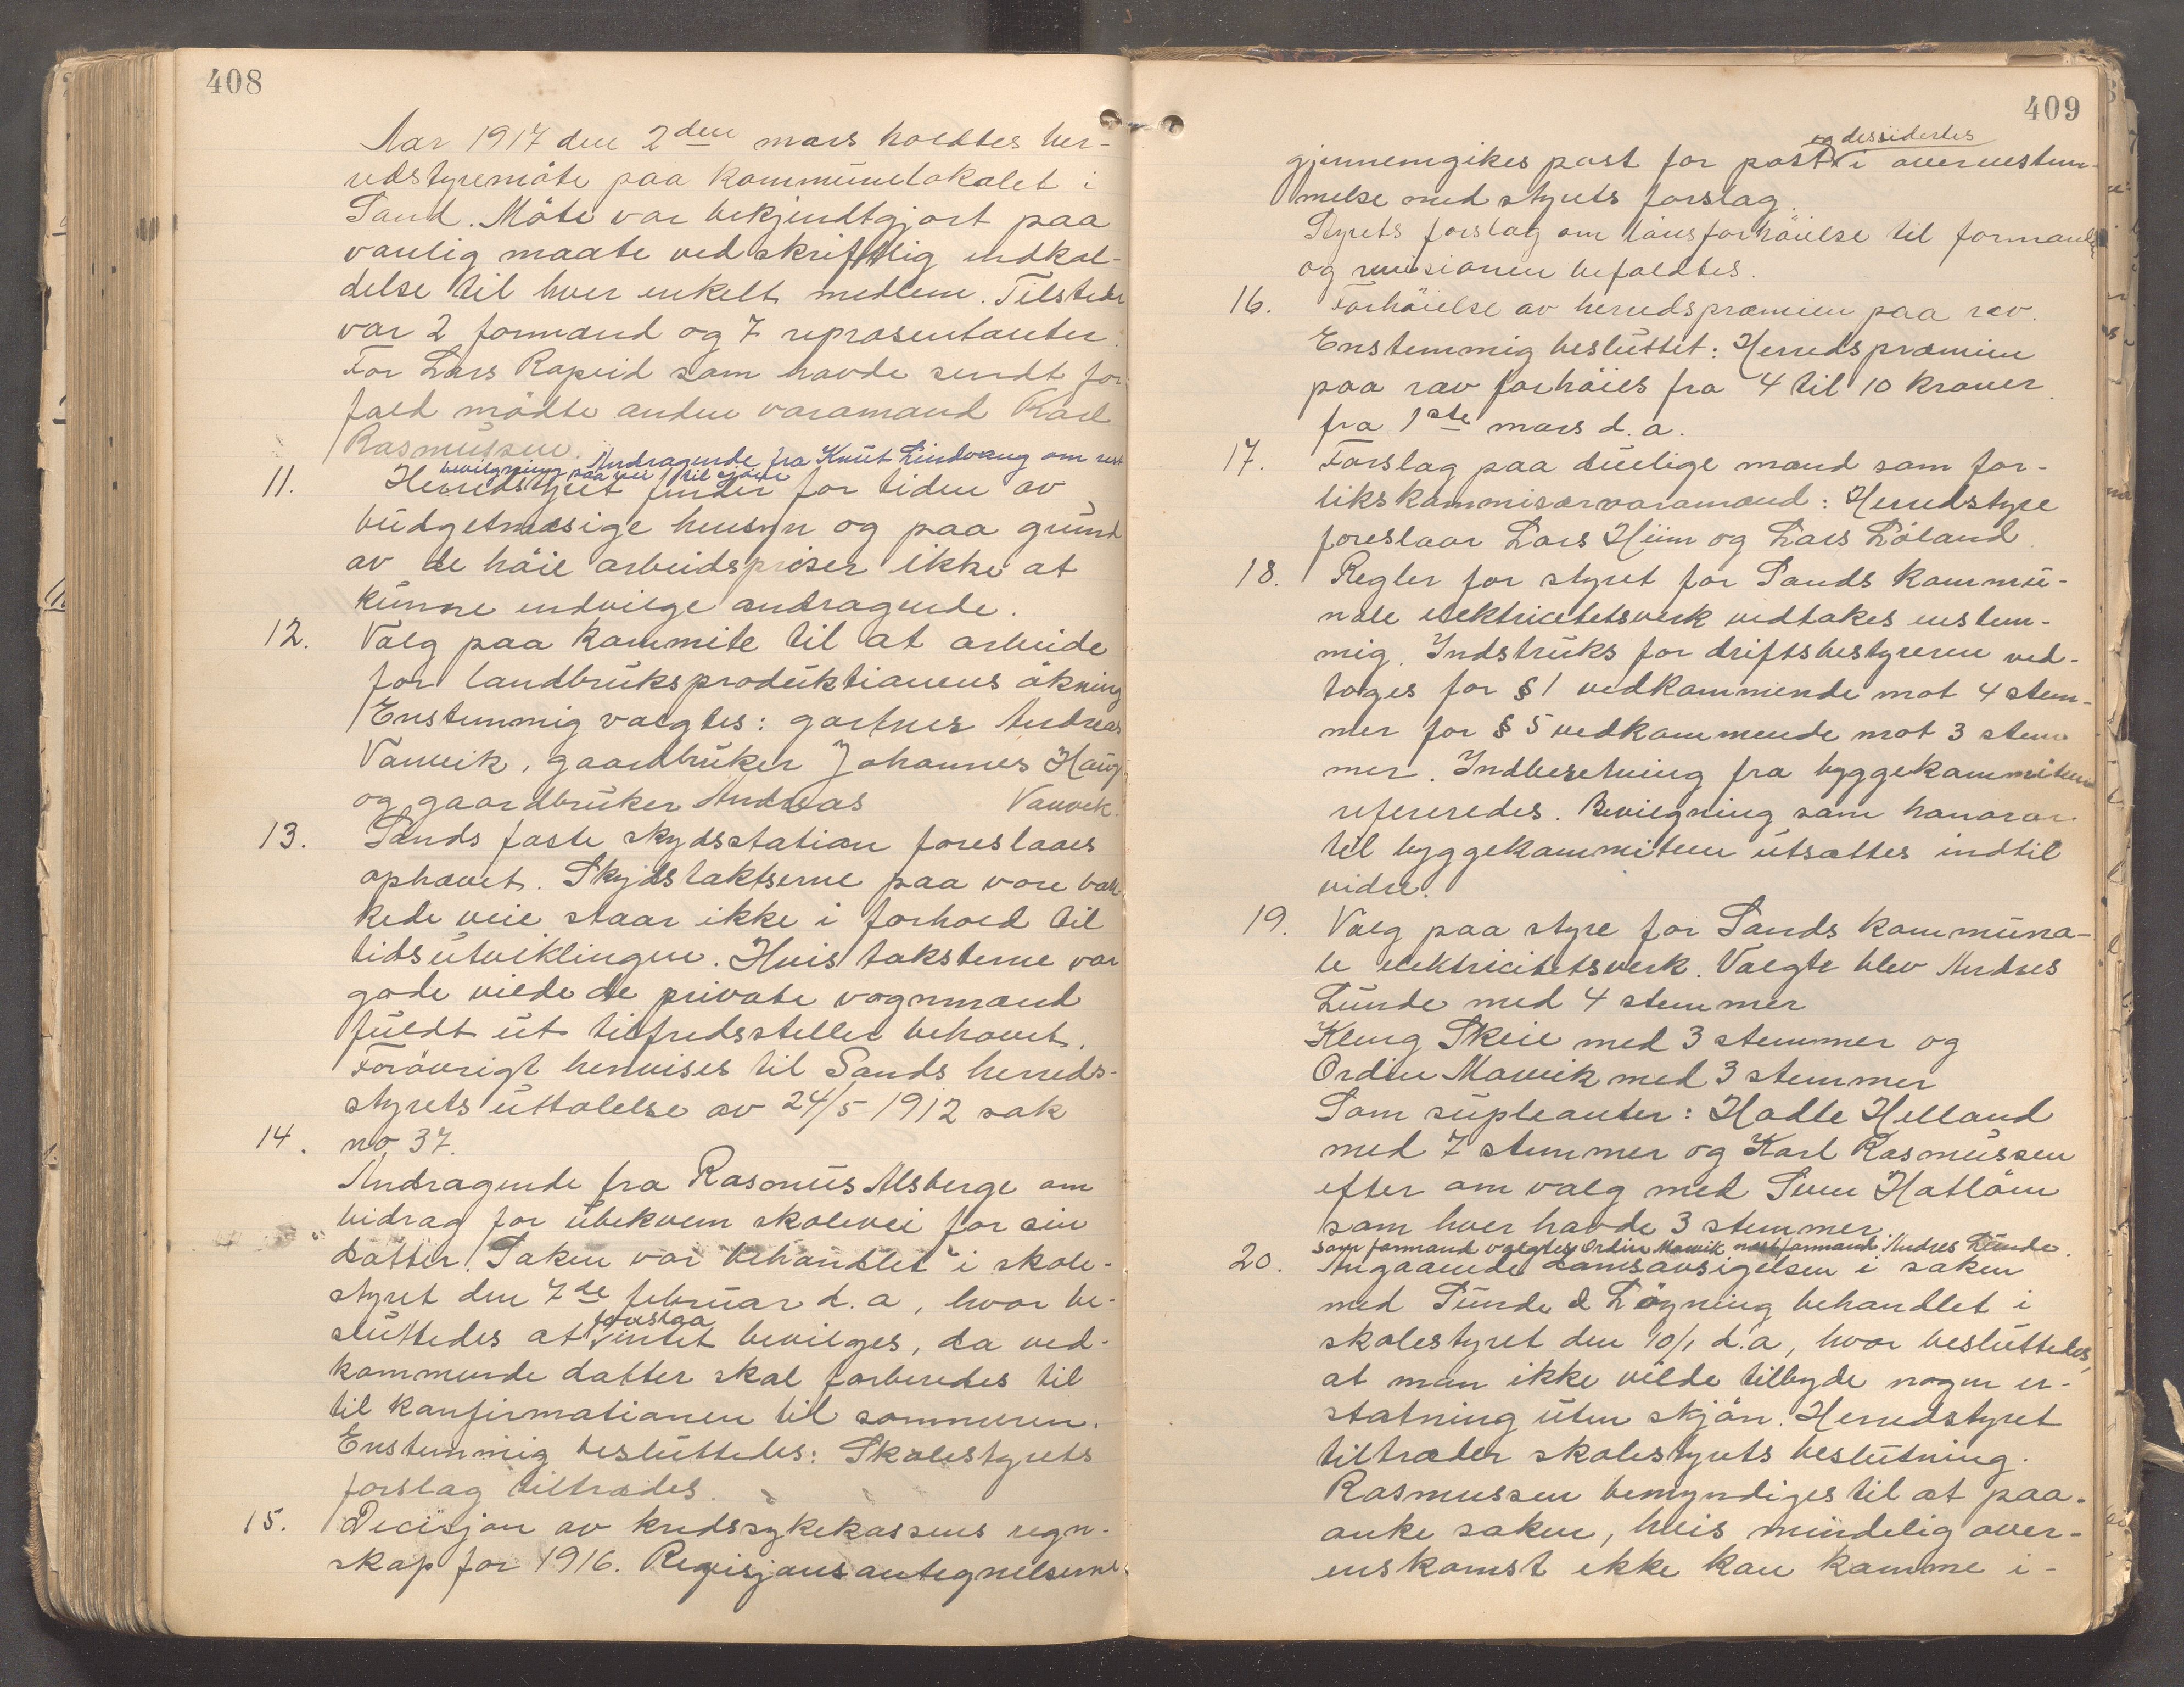 408
Aar 1917 den 2den mars holdtes her-
redstyremöte paa kommunelokalet i
Sand. Möte var bekjendtgjort paa
vanlig maate ved skriftlig indkal-
delse til hver enkelt medlem. Tilstede
var 2 formænd og 7 repræsentanter.
For Lars Rapeid som havde sendt for
fald mödte anden varamand Karl
Rasmussen. Andragende fra Knut Lindvang om
bevilgning paa vei til sjöen
11. Herredstyret finder for tiden av
budgetmæsige hensyn og paa grund
av de höie arbeidspriser ikke at
kunne indvilge andragende.
12. Valg paa kommite til at arbeide
for landbruksproduktionens ökning
Enstemmig valgtes: gartner Andreas
Vanvik, gaardbruker Johannes Haug
og gaardbruker Andreas Vanvik.
13. Sands faste skydsstation foreslaaes
ophævet. Skydstaktserne paa vore bak-
kede veie staar ikke i forhold til
tidsutviklingen. Hvis taksterne var
gode vilde de private vognmænd
fuldt ut tilfredsstille behovet.
Forövrigt henvises til Sands herreds-
styrets uttalelse av 24/5 1912 sak
14. no 37.
Andragende fra Rasmus Alsberge om
bidrag for ubekvem skolevei for sin
datter. Saken var behandlet i skole-
styret den 7de februar d.a, hvor be-
foreslaa
sluttedes at intet bevilges, da ved-
kommende datter skal forberedes til
til konfirmationen til sommeren.
Enstemmig besluttedes: Skolestyrets
forslag tiltrædes.
15. Decisjon av kredssykekassens regn-
skap for 1916. Revisjonsantegnelserne
409
og dessidertes
gjennemgikes post for post i overenstem-
melse med styrets forslag.
Styrets forslag om lönsforhöielse til formand
og revisionen befoldtes.
16. Forhöielse av herredspræmien paa ræv.
Enstemmig besluttet: Herredspræmien
paa ræv forhöies fra 4 til 10 kroner
fra 1ste mars d.a.
17. Forslag paa duelige mænd som for-
likskommisærvaramænd: Herredstyre
foreslaar Lars Hiim og Lars Löland
18. Regler for styret for Sands kommu-
nale elektricitetsverk vedtakes enstem-
mig. Indstruks for driftsbestyreren ved-
toges for § 1 vedkommende mot 4 stem-
mer for § 5 vedkommende mot 3 stem
mer. Indberetning fra byggekommiteen
refereredes. Bevilgning som honorar
til byggekommiteen utsættes indtil
vidre.
19. Valg paa styre for Sands kommuna-
le elektricitetsverk. Valgte blev Andres
Lunde med 4 stemmer
Kleng Skeie med 3 stemmer og
Ordin Mæwik med 3 stemmer
Som supleanter: Hadle Helland
med 7 stemmer og Karl Rasmussen
efter om valg med Sven Hatlöm
som hver havde 3 stemmer.
som formand valgtes Ordin Mæwik næstformand Andres Lunde.
20. Angaaende domsavsigelsen i saken
med Sunde & Lögning behandlet i
skolestyret den 10/1 d.a, hvor besluttedes,
at man ikke vilde tilbyde nogen er-
statning uten skjön. Herredstyret
tiltræder skolestyrets beslutning.
Rasmussen bemyndiges til at paa-
anke saken, hvis mindelig over-
enskomst ikke kan komme i-